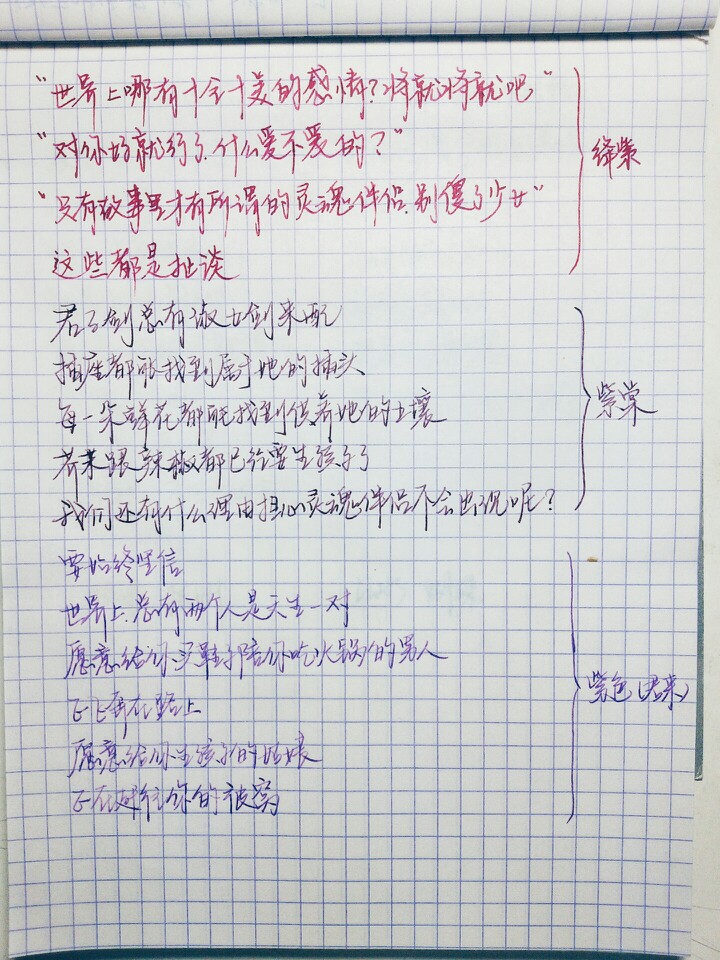 "世界上哪有十全十美的感情？将就将就吧"
"对你好就行了.什么爱不爱的？"
"只有故事里才有所谓的灵魂伴侣.别傻了少女"
这些都是扯谈
绛紫
君子剑总有淑女剑来配
插座都能找到属于她的插头
每一朵鲜花都能找到供养她的土壤
芥末跟辣椒都已经要生孩子了
我们还有什么理由担心灵魂伴侣不会出现呢？
紫棠
要始终坚信
世界上.总有两个人是天生一对
愿意给你买鞋子陪你吃火锅的男人
正飞奔在路上
愿意给你生孩子的姑娘
正在赶往你的被窝
紫色(君来)